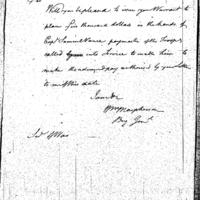 Will you be pleased to issue your Warrant to
place five thousand dollars in the hands of
Capt Samuel Vance paymaster to the Troops
called into Service to enable him to
make the advanced pay authorised by your letter
to me of this date
I am Sir
Wm Macpherson
Brig Genl.
Secy of War